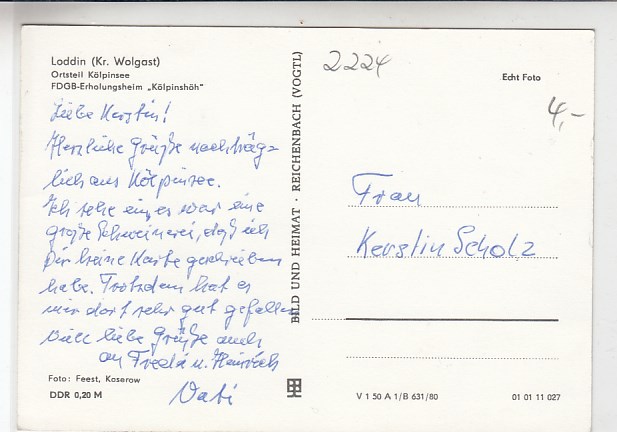 Loddin (Kr. Wolgast)
Ortsteil Kölpinsee
FDGB-Erholungsheim „Kölpinshöh"
Liebe Kerstin!
Herzliche Grüße nachträg=
lich aus Kölpinsee.
Ich sehe ein, es war eine
große Schweinerei, daß ich
Dir keine Karte geschrieben
habe. Trotzdem hat es
mir dort sehr gut gefallen
Viele liebe Grüße auch
an Freda u. Heinrich
Vati
Foto: Feest, Koserow
DDR 0,20 M
BILD UND HEIMAT · REICHENBACH (VOGTL)
2224
Echt Foto
4,-
Frau
Kerstin Scholz
V 1 50 A 1/B 631/80
01 01 11 027